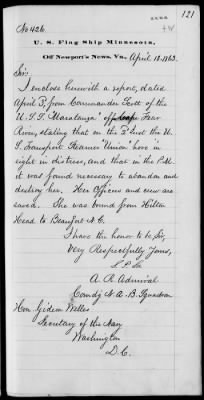 121
No 426.
U. S. Flag Ship Minnesota,
Off Newport's News, Va., April 18. 1863.
Sir:
I enclose herewith a report, dated
April 3, from Commander Scott of the
U.S.S. "Maratanza" off Fear
River, stating that on the 3d inst the U.
S. Transport Steamer "Union" hove in
sight in distress, and that in the P.M.
it was found necessary to abandon and
destroy her. Her Officers and crew are
saved. She was bound from Hilton
Head to Beaufort N.C.
I have the honor to be, Sir,
Very Respectfully Yours,
S. P. Lee
A. R. Admiral
Comdg N. A. B. Squadron
Hon Gideon Welles
Secretary of the Navy
Washington
D. C.